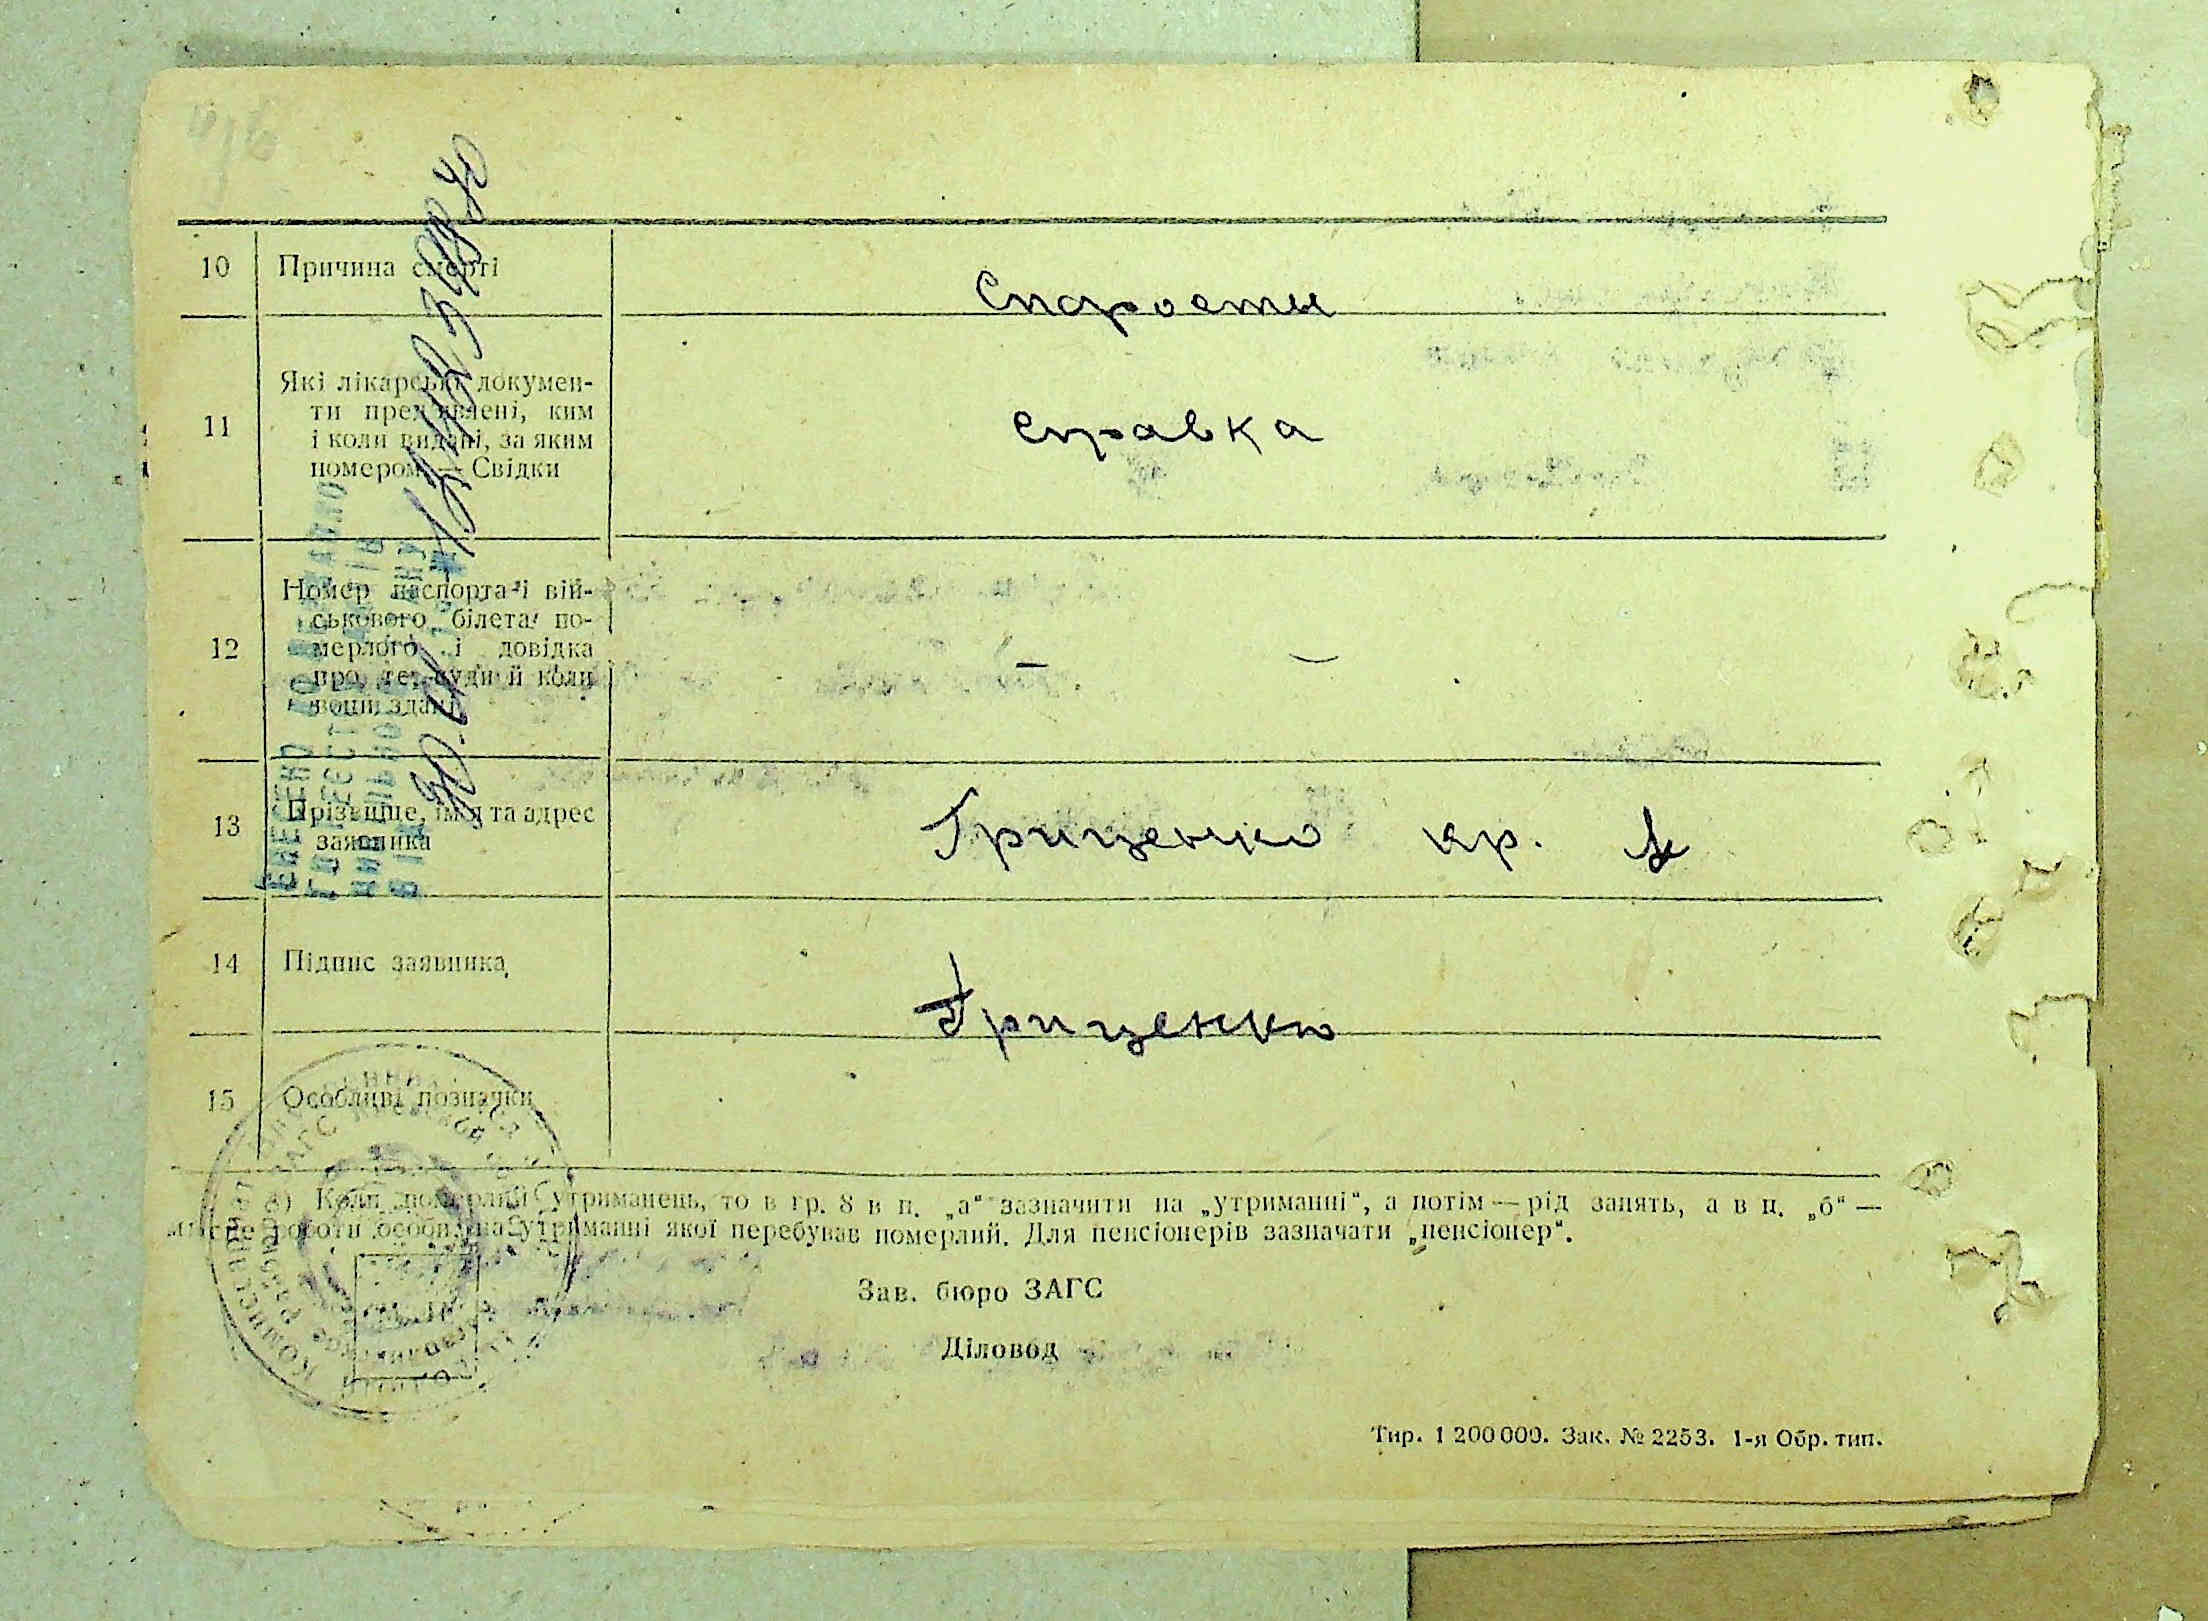 10 Причина смерті
Старость
11 Які лікарські докумен-
ти пред'явлені, ким
і коли видані, за яким
номером. — Свідки
справка
12 Номер паспорта і вій-
ськового білета по-
мерлого і довідка
про те, куди й коли
вони здані
— —
13 Прізвище, ім'я та адрес
заявника
Гриценко кр.
14 Підпис заявника
Гриценко
15 Особливі позначки
*) Коли померлий утриманець, то в гр. 8 в п. „а“ зазначити на „утриманні“, а потім — рід занять, а в п. „б“ —
місце роботи особи, на утриманні якої перебував померлий. Для пенсіонерів зазначати „пенсіонер“.
Зав. бюро ЗАГС
Діловод
Тир. 1 200 000. Зак. № 2253. 1-я Обр. тип.